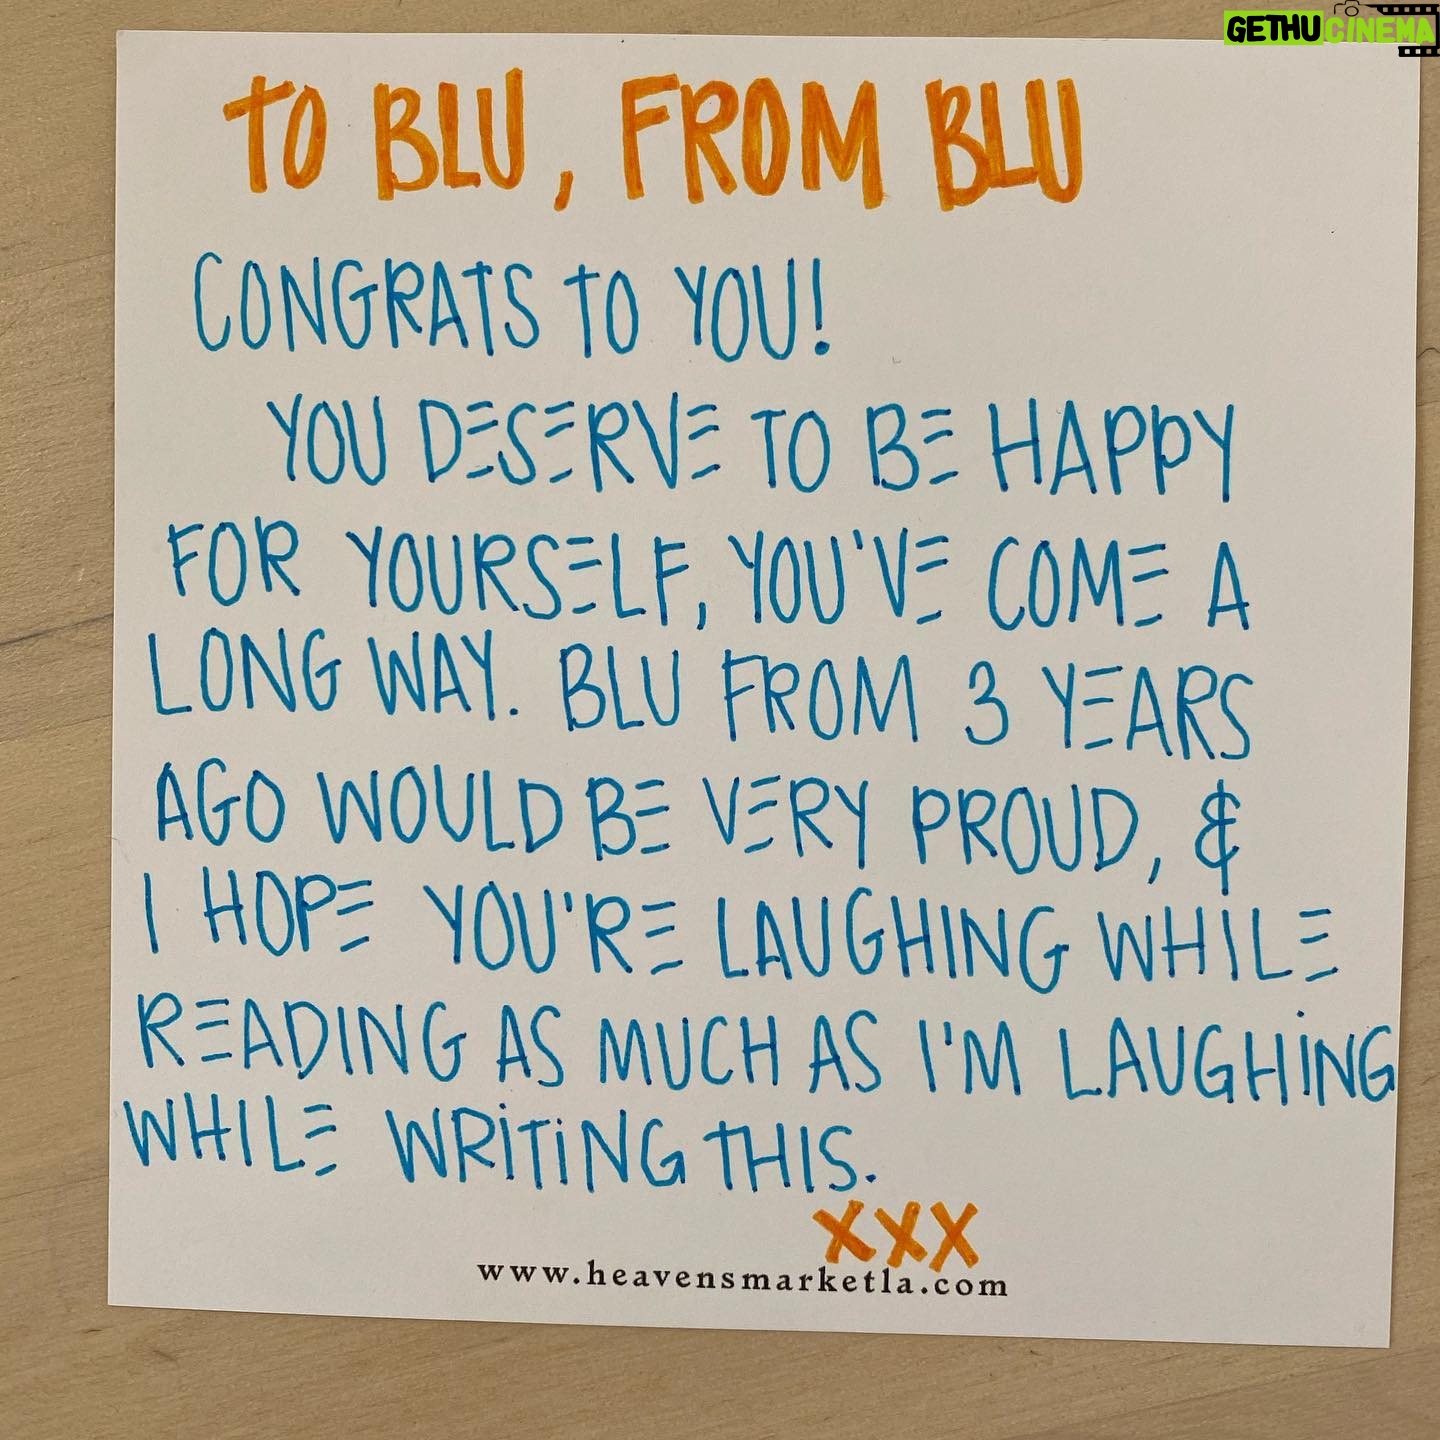 GETHU CINEMA
TO BLU, FROM BLU
CONGRATS TO YOU!
YOU DESERVE TO BE HAPPY
FOR YOURSELF, YOU'VE COME A
LONG WAY. BLU FROM 3 YEARS
AGO WOULD BE VERY PROUD, &
I HOPE YOU'RE LAUGHING WHILE
READING AS MUCH AS I'M LAUGHING
WHILE WRITING THIS.
XXX
www.heavensmarketla.com